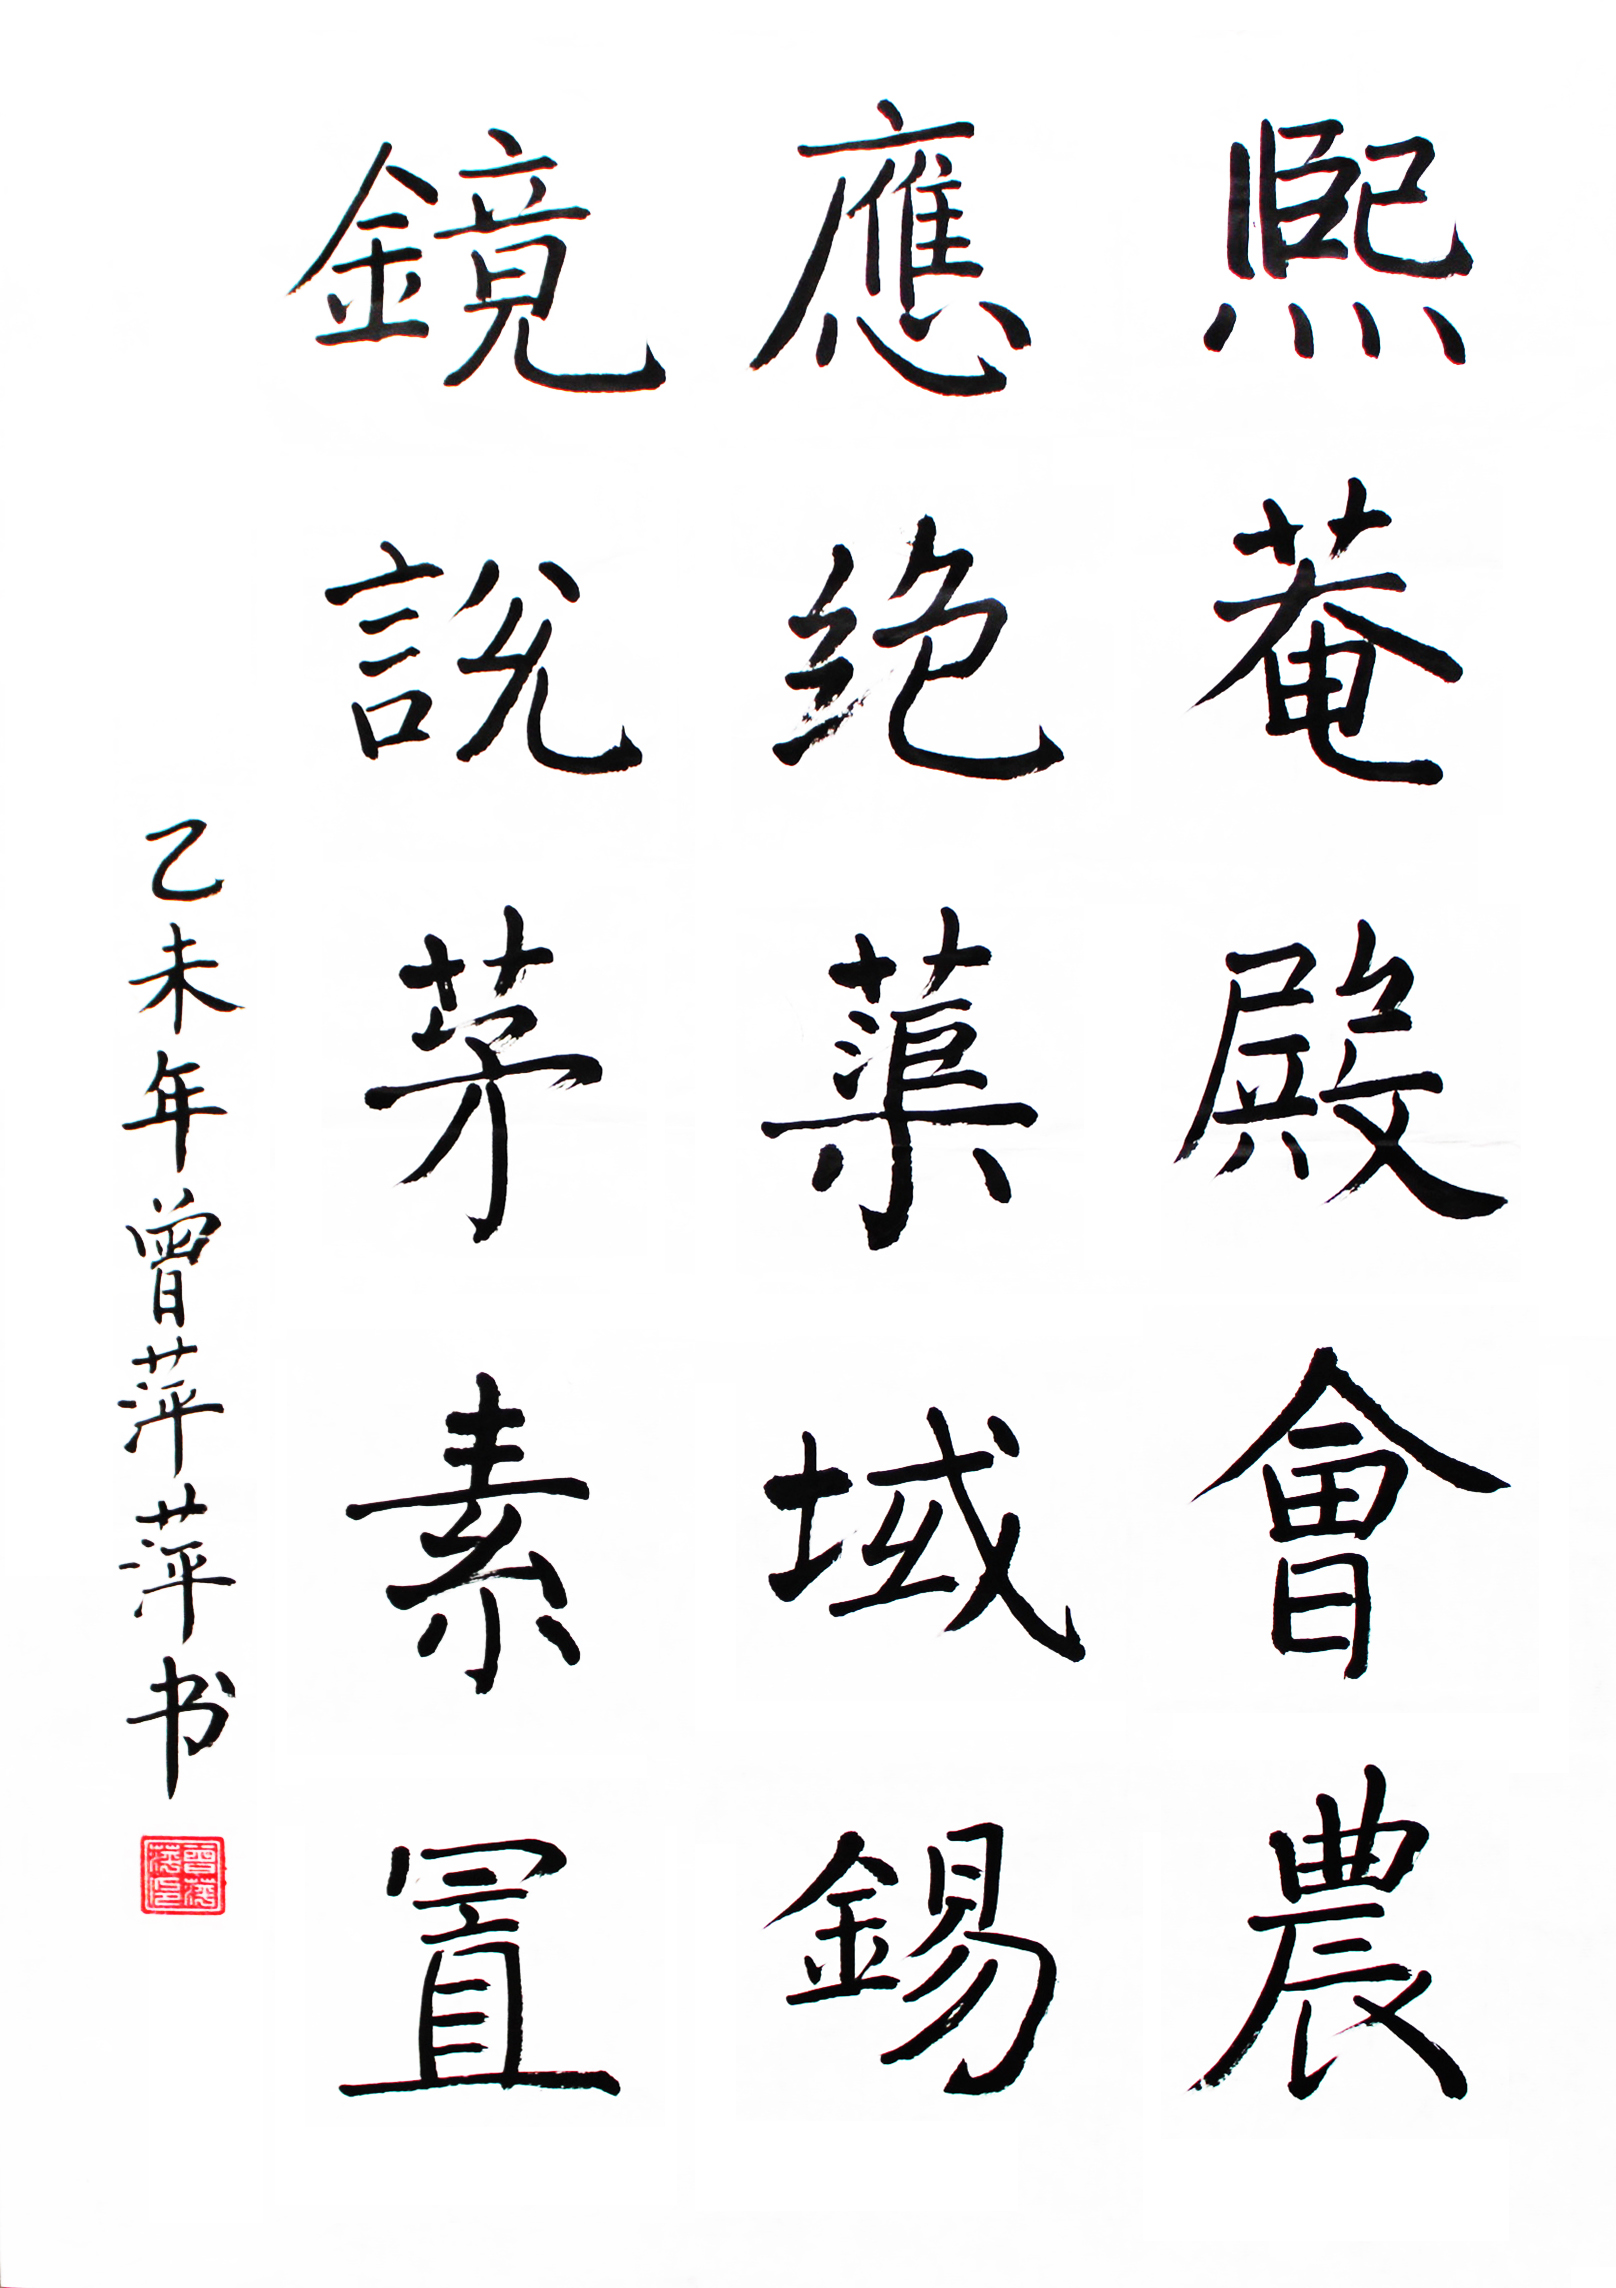 熙菴殿會農
應絶蕖域錫
鏡説茅素置
乙未年曾萍萍书